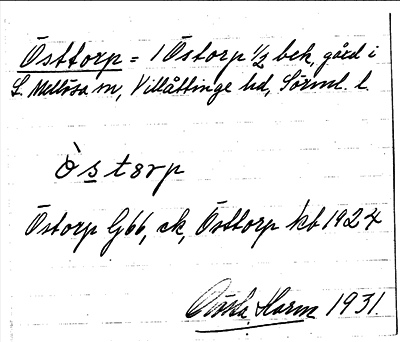 Östtorp = 1 Östorp 1/2 bek, gård i
L. Mellösa sn, Villåttinge hd, Sörml. l.
östorp
Östorp G66, ek, Östtorp kb 1924
Harm 1931.